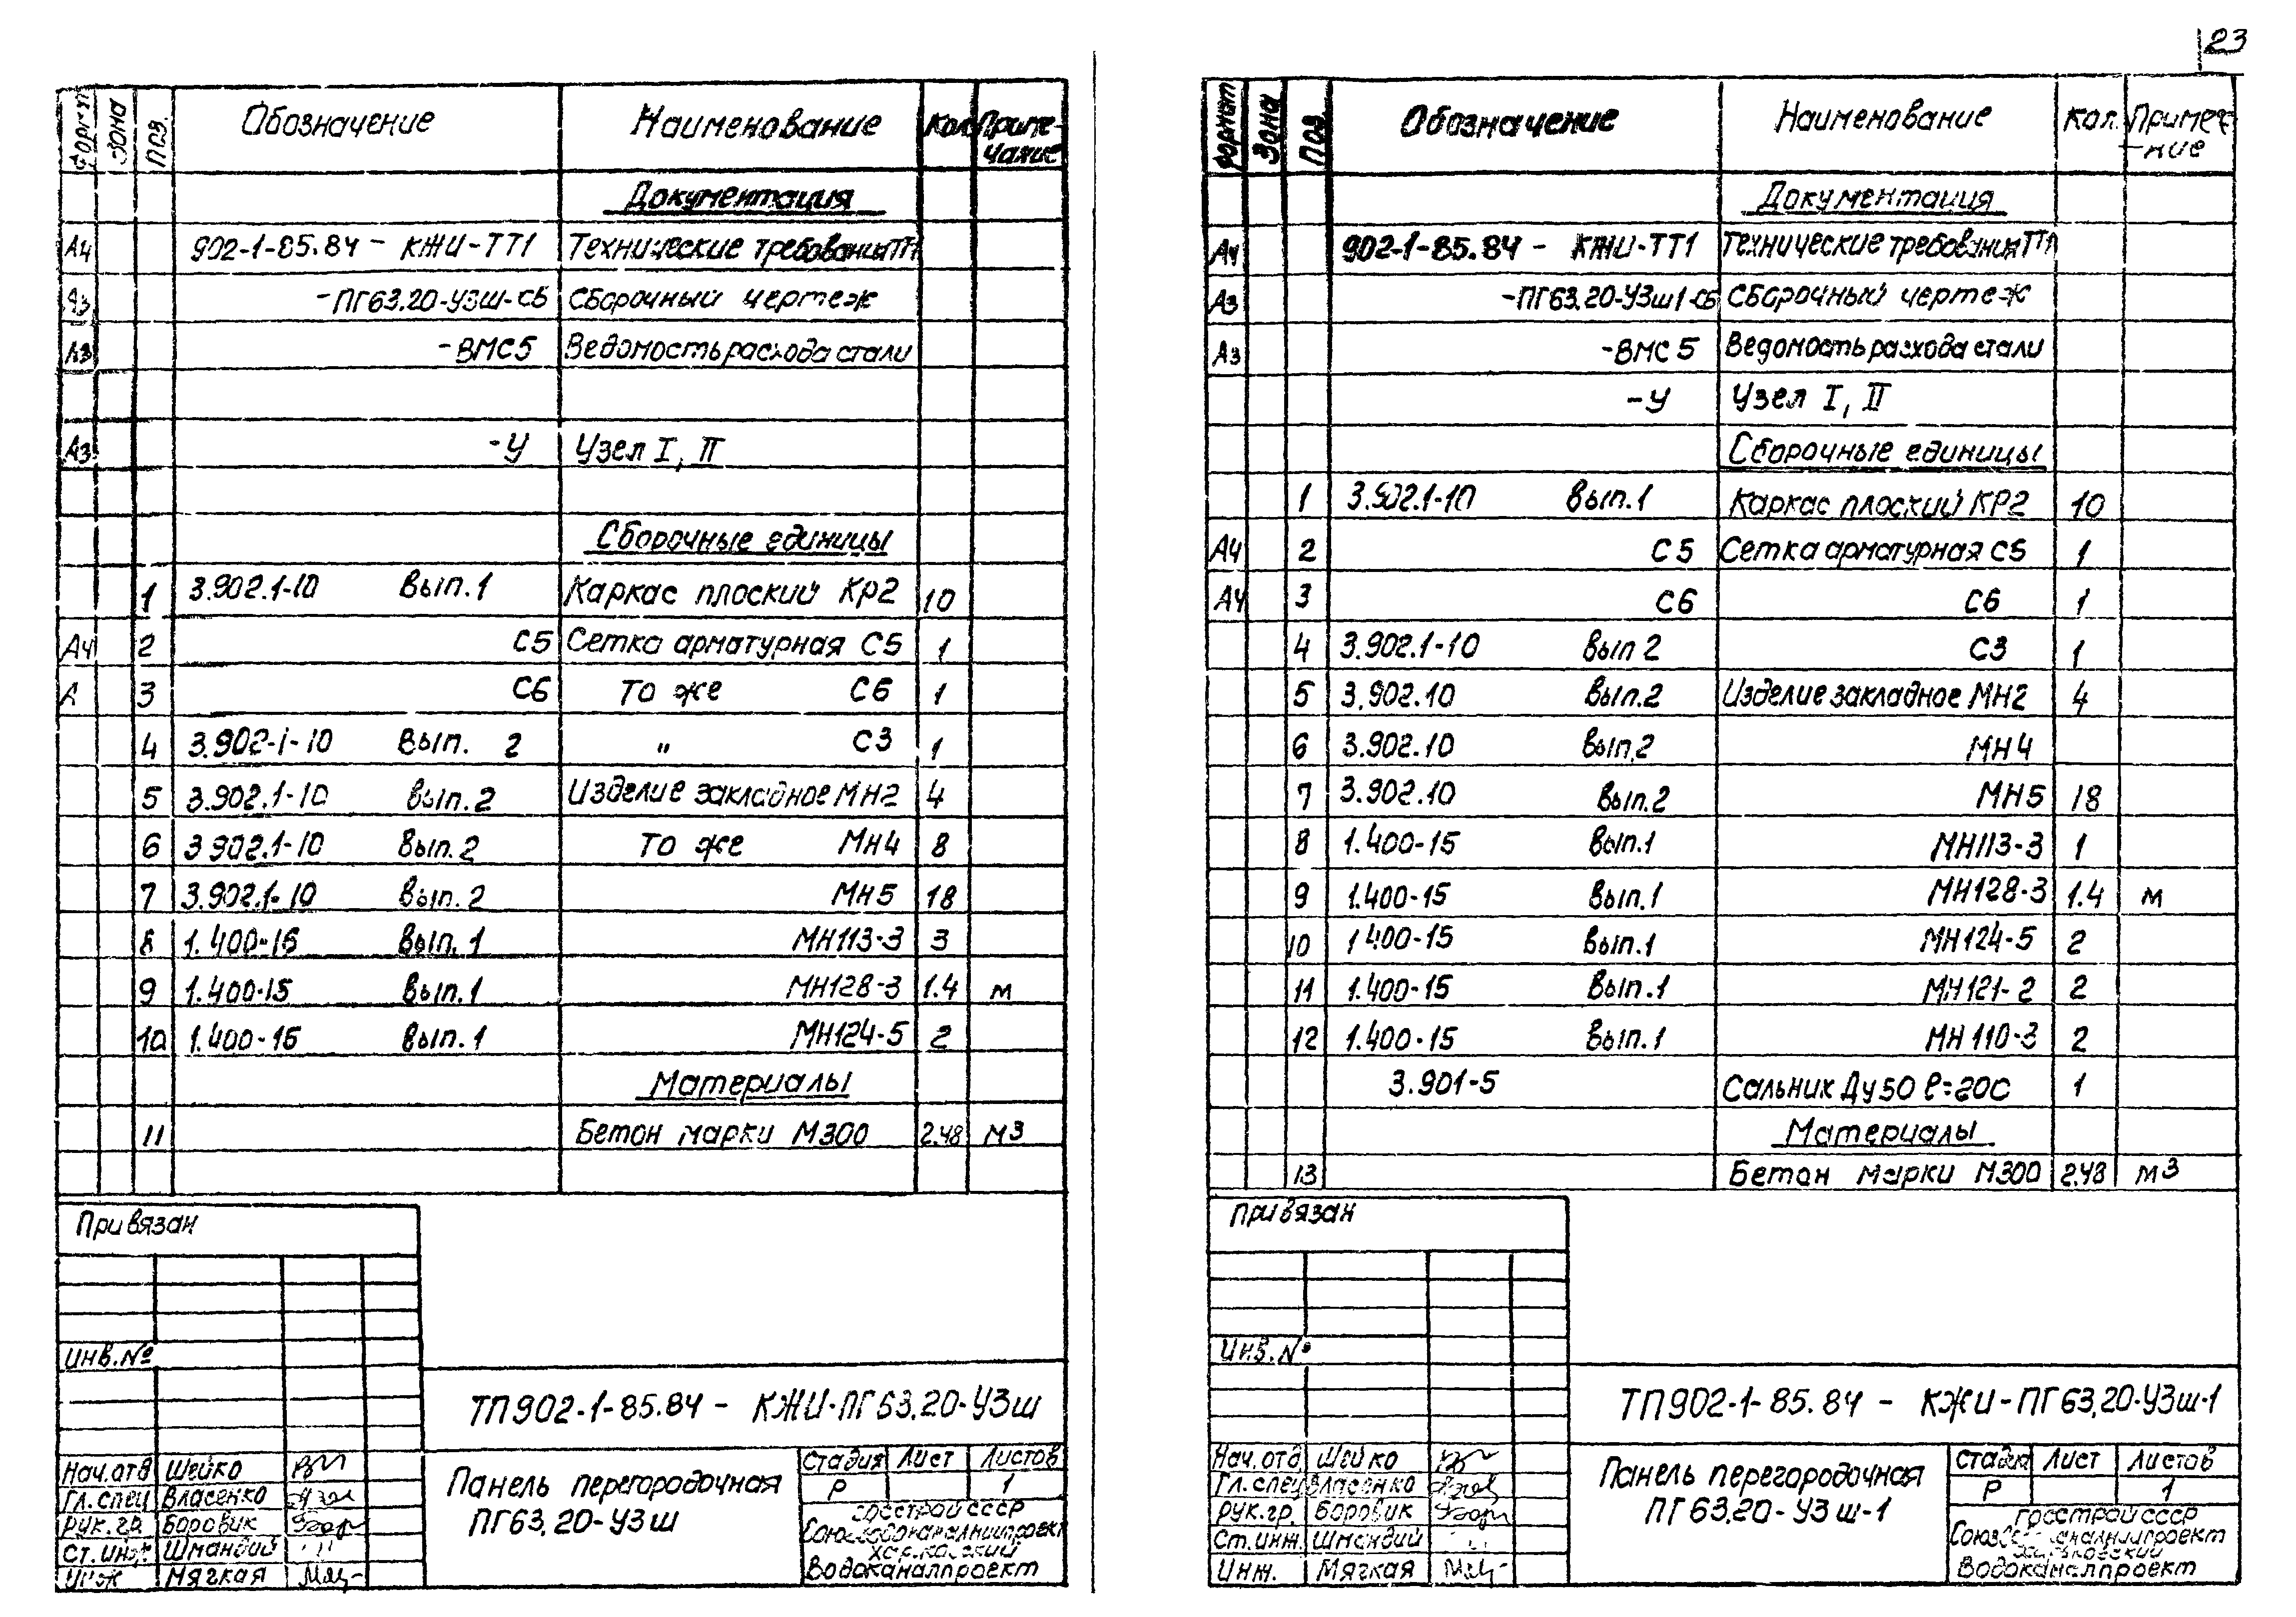 23
Формат Зона Поз. Обозначение Наименование Кол. Приме-чание
Документация
А4 902-1-85.84 - КЖИ-ТТ1 Технические требования ТТ1
А3 -ПГ63.20-У3ш-СБ Сборочный чертеж
А3 -ВМС5 Ведомость расхода стали
А3 -У Узел I, II
Сборочные единицы
1 3.902.1-10 Вып.1 Каркас плоский КР2 10
А4 2 С5 Сетка арматурная С5 1
А 3 С6 То же С6 1
4 3.902-1-10 Вып. 2 " С3 1
5 3.902.1-10 Вып.2 Изделие закладное МН2 4
6 3 902.1-10 Вып.2 То же МН4 8
7 3.902.1-10 Вып.2 МН5 18
8 1.400-15 Вып.1 МН113-3 3
9 1.400-15 Вып.1 МН128-3 1.4 м
10 1.400-15 Вып.1 МН124-5 2
Материалы
11 Бетон марки М300 2.48 м3
Привязан
Инв.№
ТП902-1-85.84 - КЖИ-ПГ63.20-У3ш
Нач.отд Шейко
Гл.спец Власенко
Рук.гр. Боровик
Ст.инж. Шмандий
Инж Мягкая
Панель перегородочная
ПГ63.20-У3ш
Стадия Лист Листов
Р 1
Госстрой СССР
Союзводоканалниипроект
Харьковский
Водоканалпроект
Формат Зона Поз Обозначение Наименование Кол. Примеч-ние
Документация
А4 902-1-85.84 - КЖИ-ТТ1 Технические требования ТТ1
А3 -ПГ63.20-У3ш1-СБ Сборочный чертеж
А3 -ВМС5 Ведомость расхода стали
-У Узел I, II
Сборочные единицы
1 3.902.1-10 Вып.1 Каркас плоский КР2 10
А4 2 С5 Сетка арматурная С5 1
А4 3 С6 С6 1
4 3.902.1-10 Вып 2 С3 1
5 3.902.10 Вып.2 Изделие закладное МН2 4
6 3.902.10 Вып.2 МН4
7 3.902.10 Вып.2 МН5 18
8 1.400-15 Вып.1 МН113-3 1
9 1.400-15 Вып.1 МН128-3 1.4 м
10 1 400-15 Вып.1 МН124-5 2
11 1.400-15 Вып.1 МН121-2 2
12 1.400-15 Вып.1 МН110-3 2
3.901-5 Сальник Ду50 ℓ=200 1
Материалы
13 Бетон марки М300 2.48 м3
Привязан
Инв.№
ТП902-1-85.84 - КЖИ-ПГ63.20-У3ш-1
Нач.отд Шейко
Гл.спец Власенко
Рук.гр. Боровик
Ст.инж. Шмандий
Инж. Мягкая
Панель перегородочная
ПГ63.20-У3ш-1
Стадия Лист Листов
Р 1
Госстрой СССР
Союзводоканалниипроект
Харьковский
Водоканалпроект